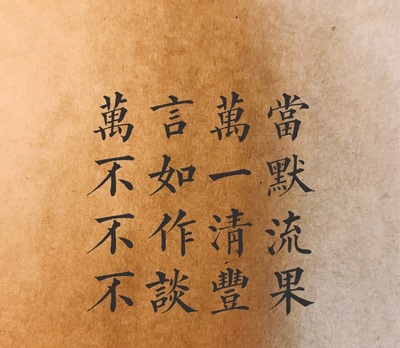 萬言萬當
不如一默
不作清流
不談豐果